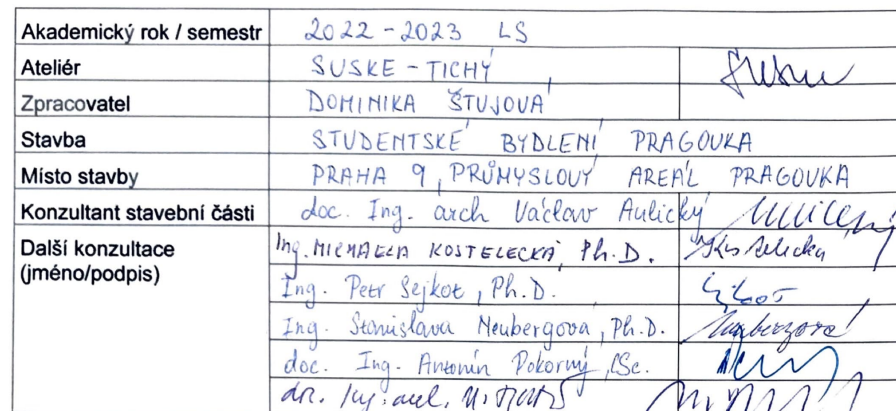 Akademický rok / semestr 2022-2023 LS
Ateliér SUSKE - TICHÝ
Zpracovatel DOMINIKA ŠTUJOVÁ
Stavba STUDENTSKÉ BYDLENÍ PRAGOVKA
Místo stavby PRAHA 9, PRŮMYSLOVÝ AREÁL PRAGOVKA
Konzultant stavební části doc. Ing. arch Václav Aulický
Další konzultace Ing. MICHAELA KOSTELECKÁ, Ph.D. Kostelecká
(jméno/podpis)
Ing. Petr Sejkot, Ph.D.
Ing. Stanislava Neubergová, Ph.D. Neubergová
doc. Ing. Antonín Pokorný, CSc.